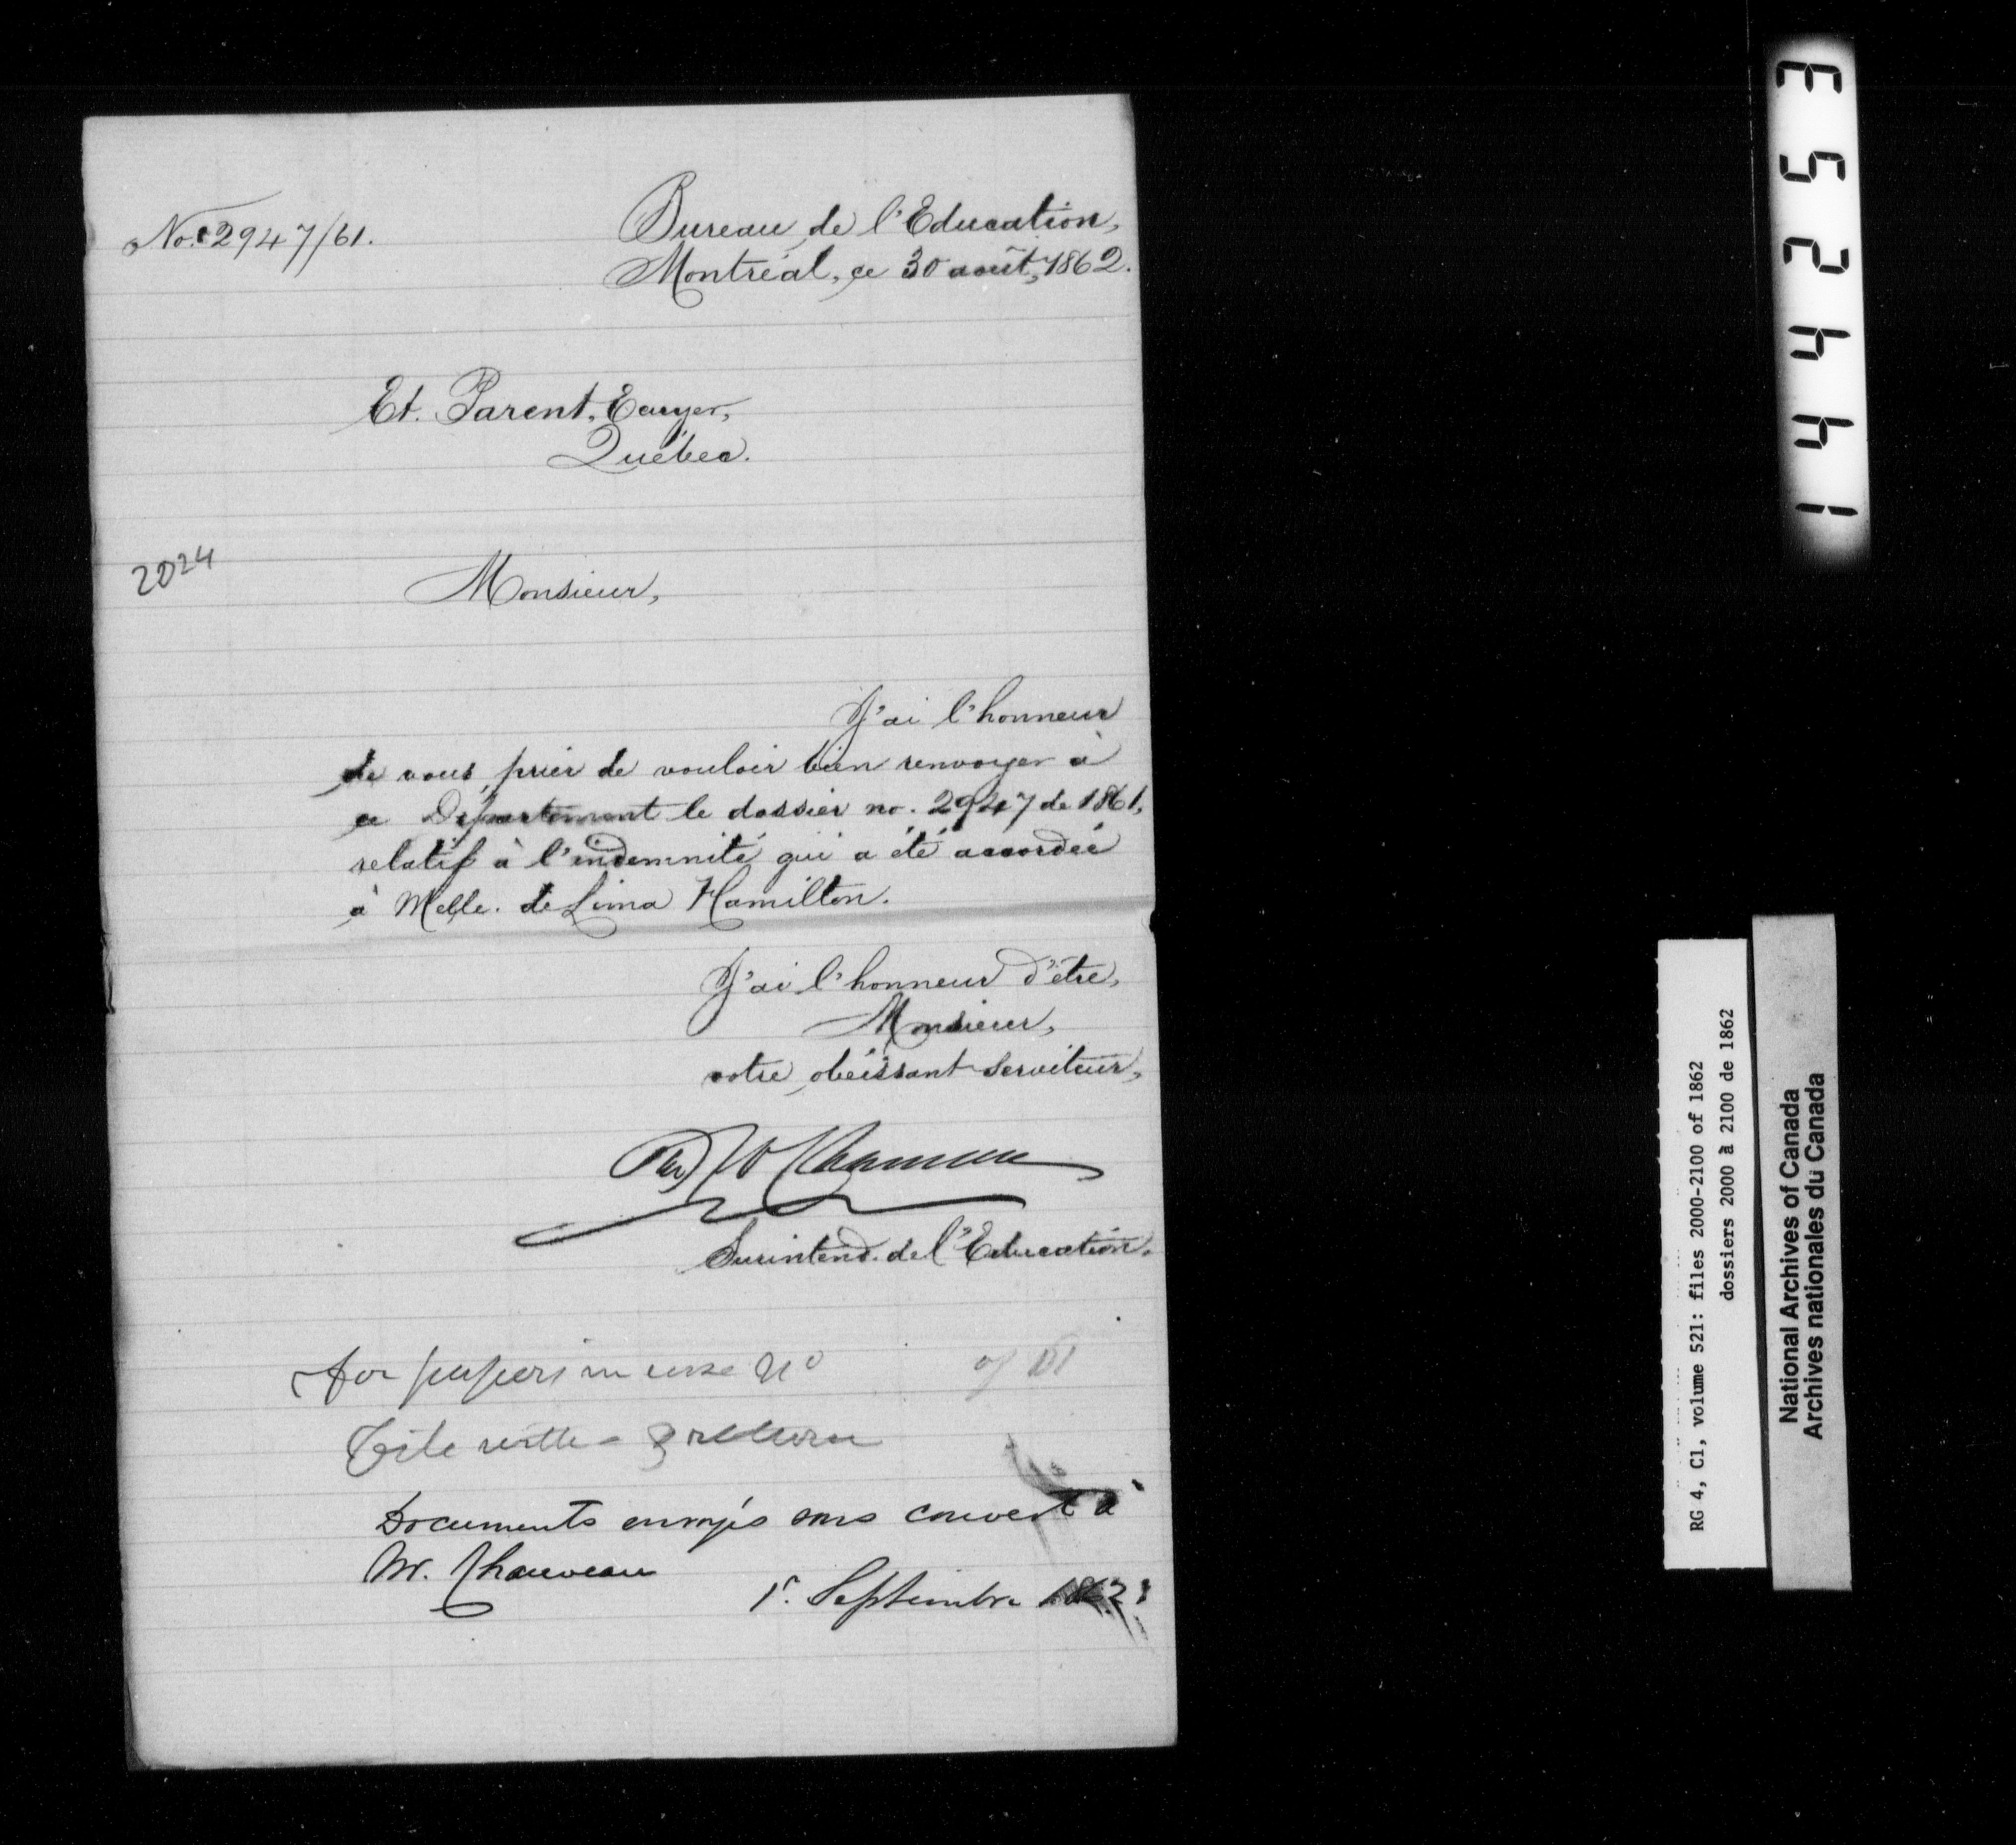 No. 2947/61.
Bureau de l'Education,
Montréal, ce 30 août, 1862.
Et. Parent, Ecuyer,
Québec.
2024
Monsieur,
J'ai l'honneur
de vous prier de vouloir bien renvoyer à
ce Département le dossier no. 2947 de 1861,
relatif à l'indemnité qui a été accordée
à Melle. de Lima Hamilton.
J'ai l'honneur d'être,
Monsieur,
votre obéissant serviteur,
Chauveau
Surintend. de l'Education.
For papers in case No of 61
Documents envoyés sous couvert à
Mr. Chauveau
1r. Septembre 1862
144253
RG 4, C1, volume 521: files 2000-2100 of 1862
dossiers 2000 à 2100 de 1862
National Archives of Canada
Archives nationales du Canada